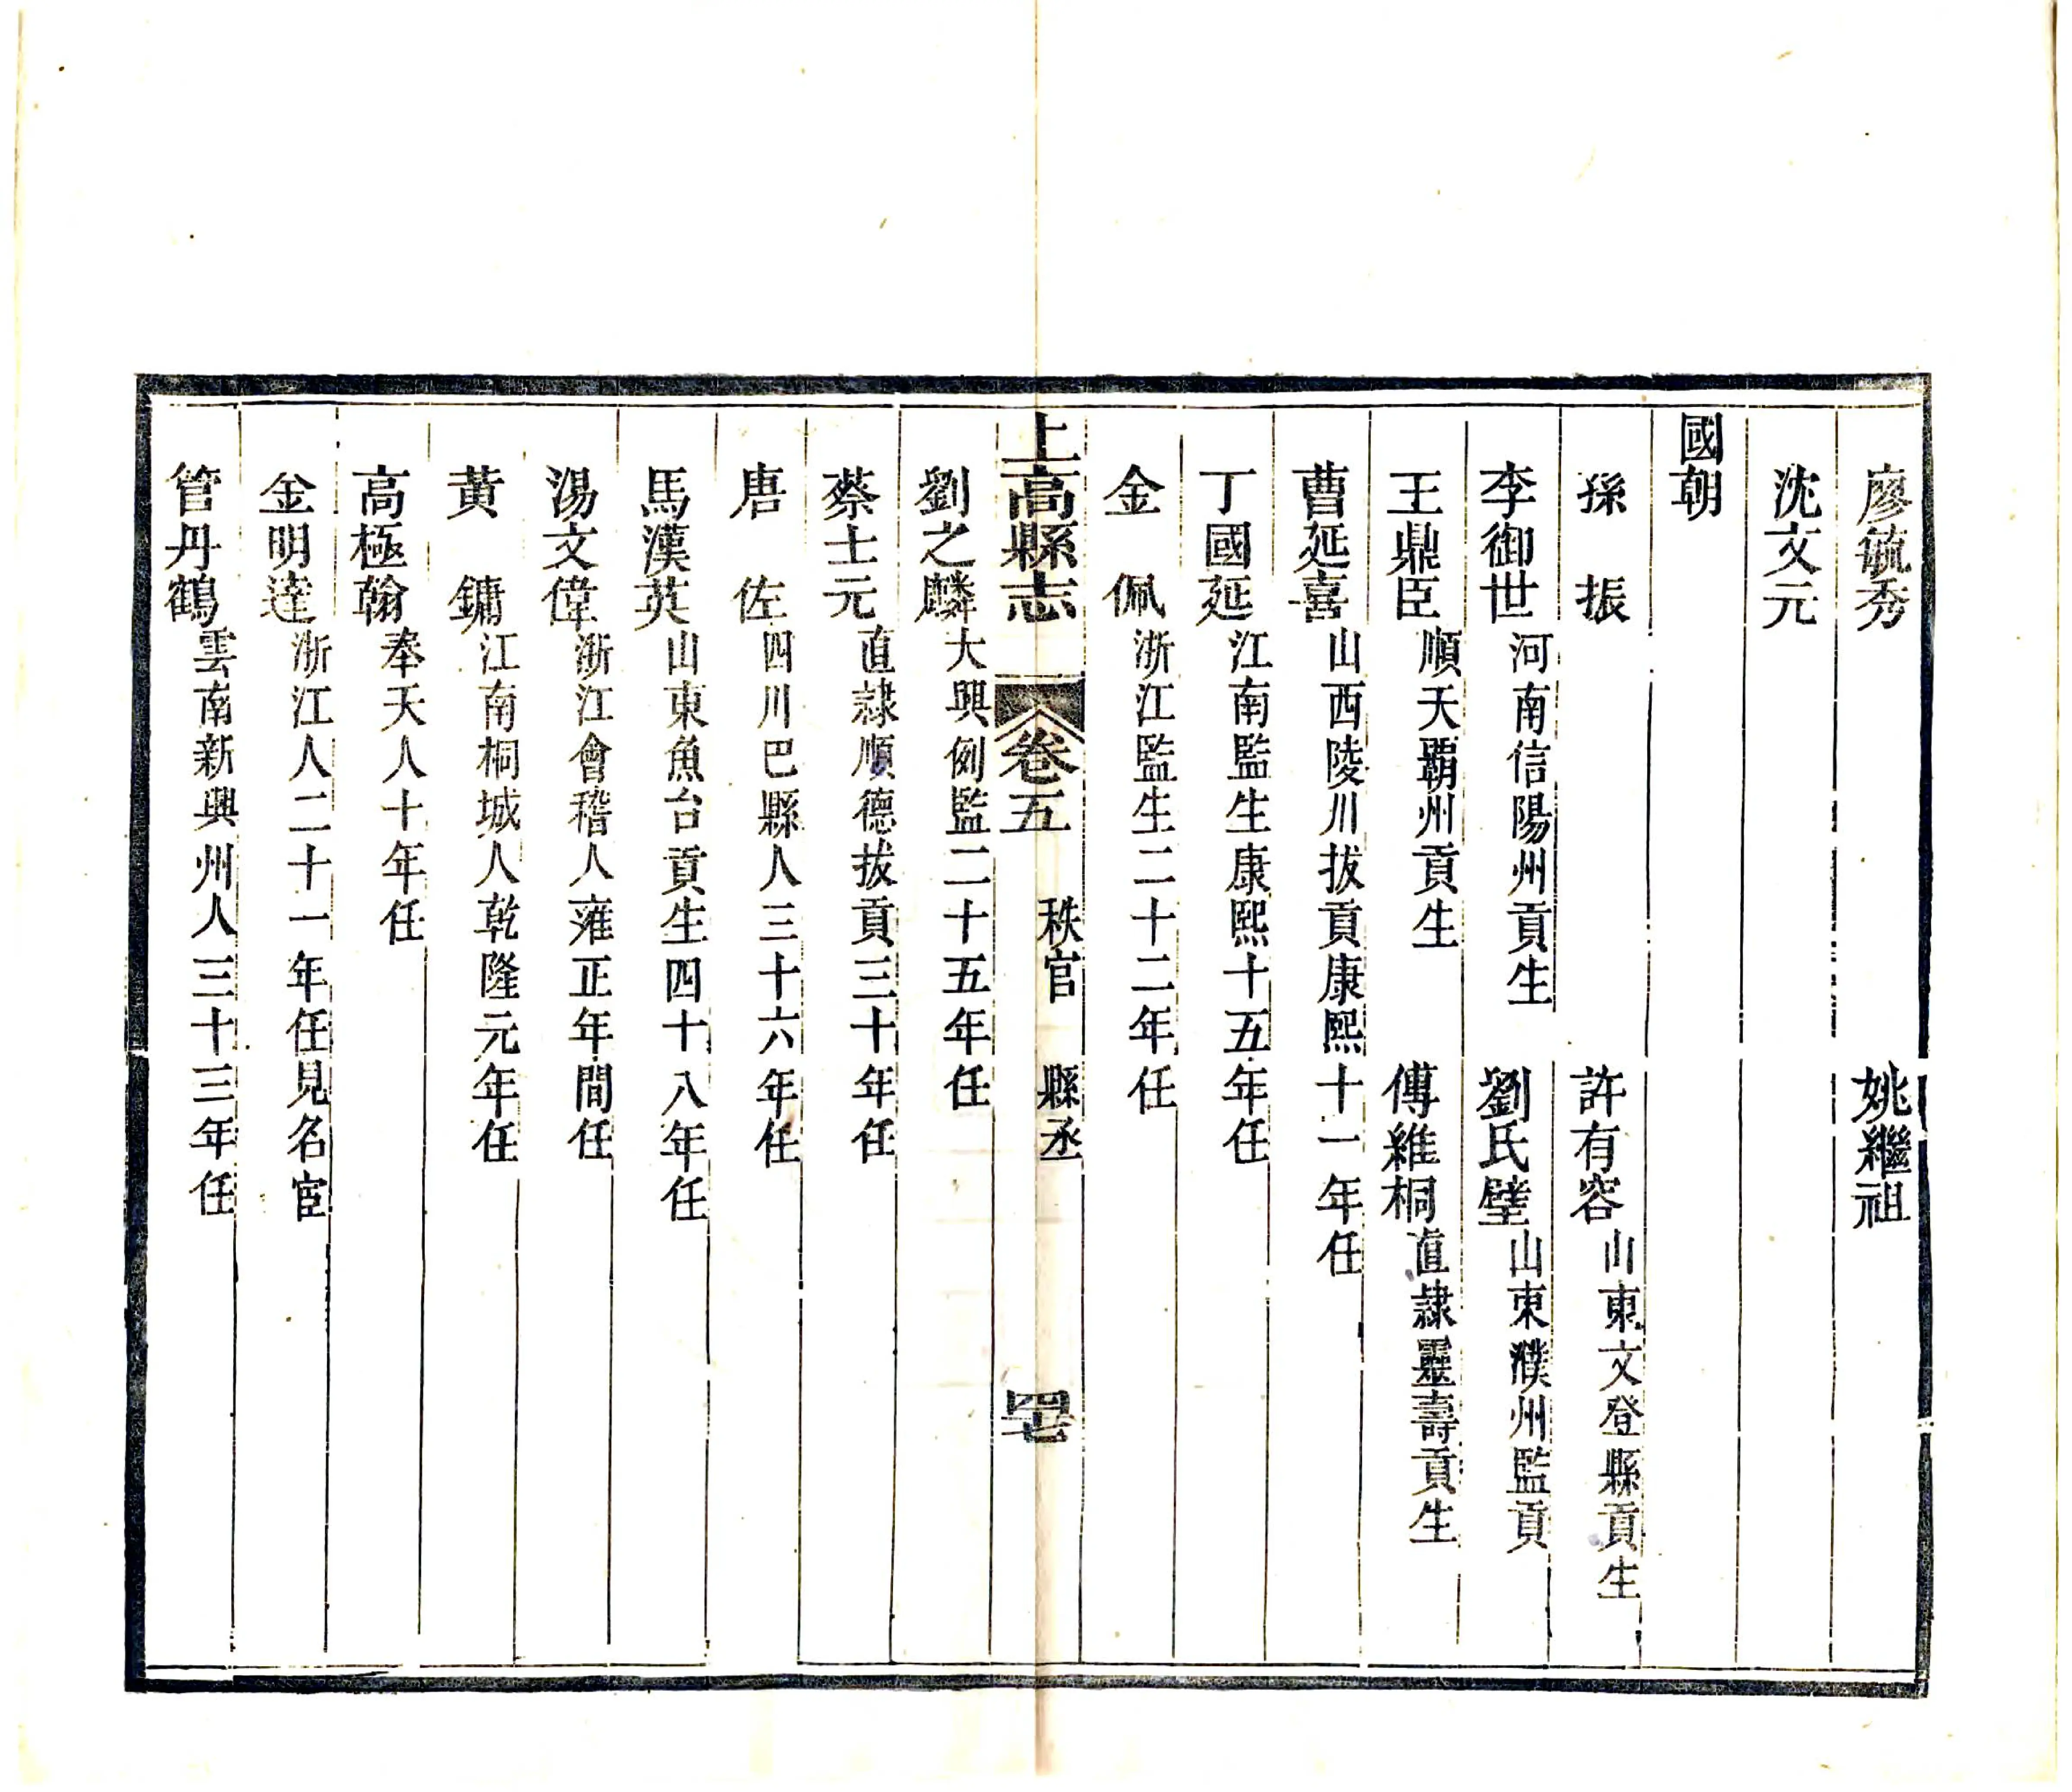 廖毓秀 姚繼祖
沈文元
國朝
孫振 許有容山東文登縣貢生
李御世河南信陽州貢生 劉氏璧山東濮州監貢
王鼎臣順天覇州貢生 傅維桐直隸靈壽貢生
曹延喜山西陵川拔貢康熙十一年任
丁國延江南監生康熙十五年任
金佩浙江監生二十二年任
上高縣志 卷五 秩官 縣丞 四七
劉之麟大興例監二十五年任
蔡士元直隸順德拔貢三十年任
唐佐四川巴縣人三十六年任
馬漢英山東魚台貢生四十八年任
湯文偉浙江會稽人雍正年間任
黃鏞江南桐城人乾隆元年任
高極翰奉天人十年任
金明達浙江人二十一年任見名宦
管丹鶴雲南新興州人三十三年任